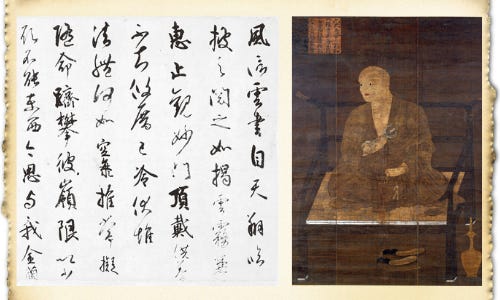 風信雲書自天翔臨
披之閲之如揭雲霧兼
恵止觀妙門頂戴供養
不知攸厝已冷伏惟
法體何如空海推常擬
隨命躋攀彼嶺限以少
願不能東西今思与我金蘭